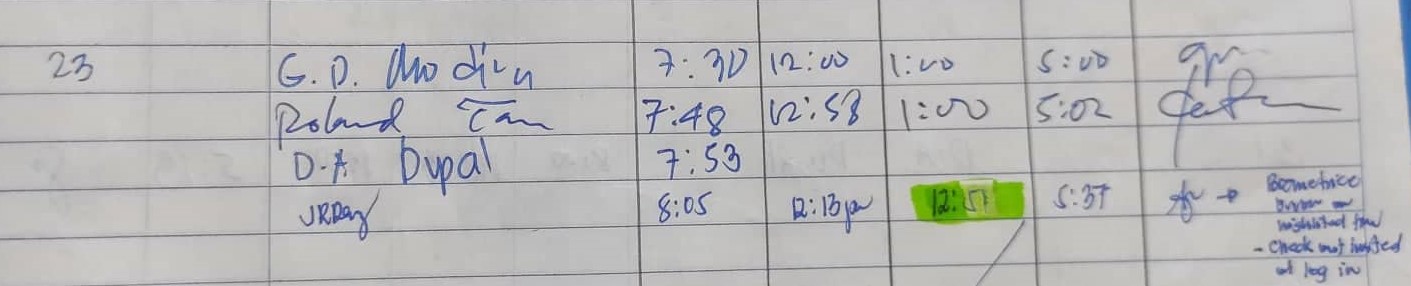 23 G. D. 7:30 12:00 1:00 5:00
Roland Tan 7:48 12:58 1:00 5:02
D.A Dupal 7:53
8:05 12:13pm 12:57 5:37 → Biometrice
error on
highlighted time
- Check not
at log in